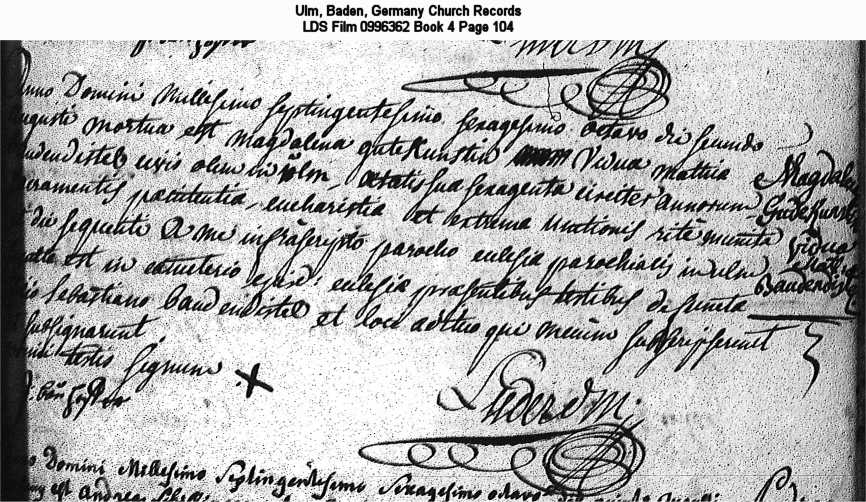 Ulm, Baden, Germany Church Records
LDS Film 0996362 Book 4 Page 104
Anno Domini Millesimo septingentesimo sexagesimo octavo die secunda
augusti mortua est Magdalena gutekunstin Vidua Mathia
baudendistel civis olim in ulm, aetatis sua sexagenta circiter annorum
sacramentis paenitentia, eucharistia et extrema unctionis rite munita
die sequente a me infrascripto parocho eclesia parochialis in ulm
est in cameterio ejusd: eclesia prasentibus testibus defuncta
Sebastiano baudendistel et loci aedituo qui mecum subscripserunt
subsignarunt
testis signum X
Magdalena
Gudekunstin
vidua
Baudendistel
Luderer mpr
Domini Millesimo Septingentesimo Sexagesimo octavo
est Andreas